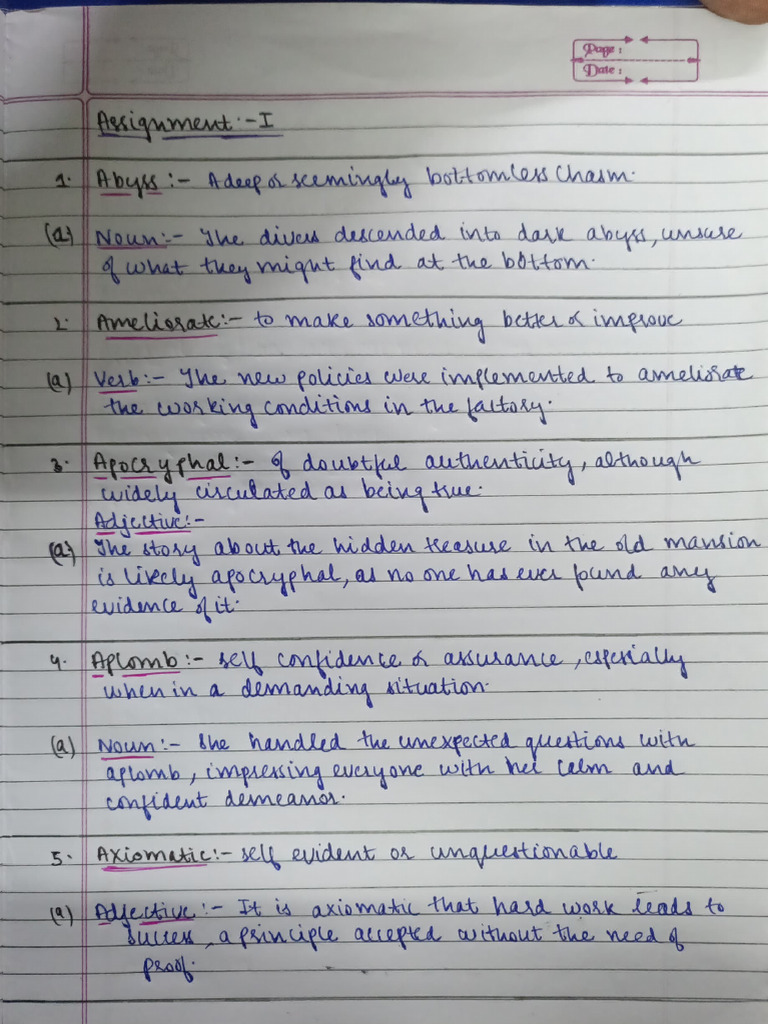 Page :
Date :
Assignment :- I
1. Abyss :- A deep or seemingly bottomless chasm.
(a) Noun:- The divers descended into dark abyss, unsure
of what they might find at the bottom.
2. Ameliorate:- to make something better or improve
(a) Verb:- The new policies were implemented to ameliorate
the working conditions in the factory.
3. Apocryphal:- of doubtful authenticity, although
widely circulated as being true.
Adjective:-
(a) The story about the hidden treasure in the old mansion
is likely apocryphal, as no one has ever found any
evidence of it.
4. Aplomb:- self confidence or assurance, especially
when in a demanding situation.
(a) Noun:- She handled the unexpected questions with
aplomb, impressing everyone with her calm and
confident demeanor.
5. Axiomatic:- self evident or unquestionable
(a) Adjective:- It is axiomatic that hard work leads to
success, a principle accepted without the need of
proof.